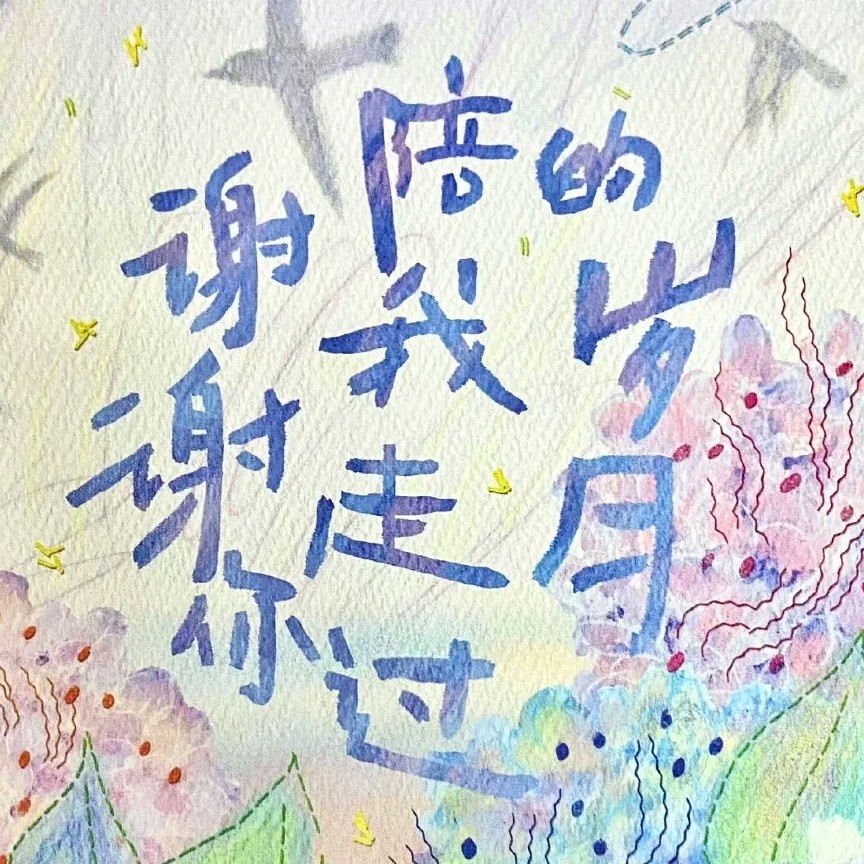 谢谢你
陪我走过
的岁月